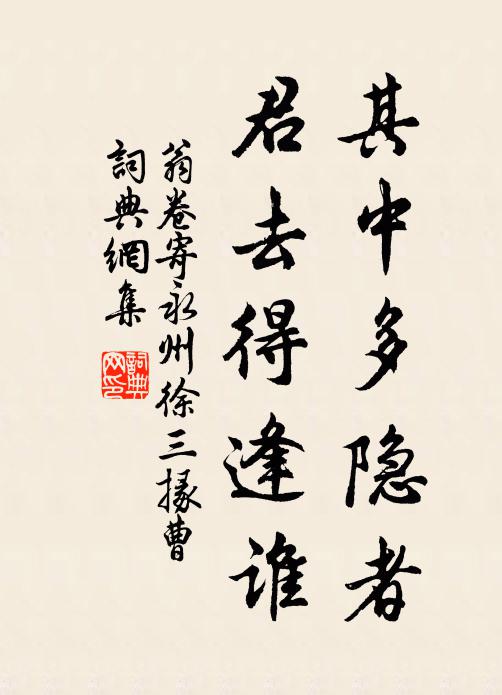 其中多隐者
君去得逢谁
翁卷寄永州徐三掾曹
詞典網集
詞典網印